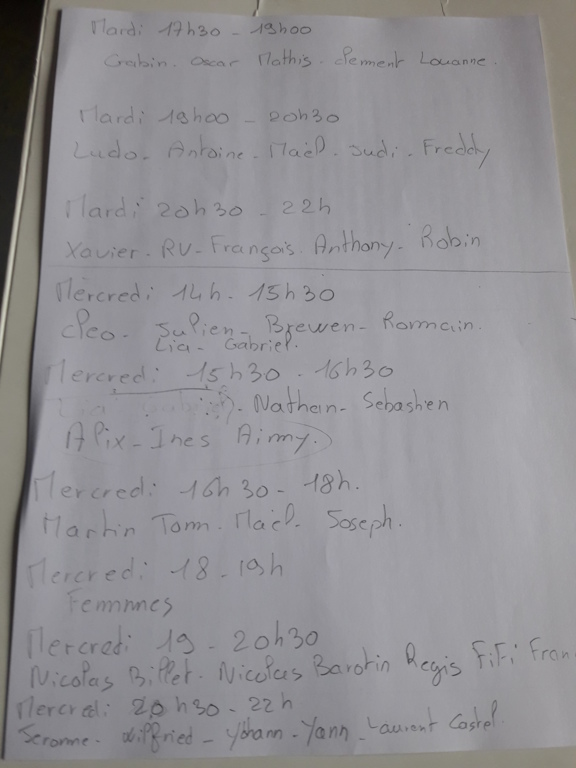 Mardi 17h30 - 19h00
Gabin. Oscar Mathis. Clement Louanne.
Mardi 19h00 - 20h30
Ludo - Antoine - Maël. Judi. Freddy
Mardi 20h30 - 22h
Xavier. RV - François. Anthony - Robin
Mercredi 14h - 15h30
Cleo - Julien - Brewen - Romain.
Lia - Gabriel.
Mercredi 15h30 - 16h30
Lia Gabriel). Nathan - Sebastien
Alix - Ines Aimy.)
Mercredi 16h30 - 18h.
Martin Tom. Maël. Joseph.
Mercredi 18 - 19h
Femmes
Mercredi 19 - 20h30
Nicolas Billet. Nicolas Barotin Regis FiFi Fran
Mercredi 20h30 - 22h
Jerome - Wilfried - Yohann - Yann - Laurent Castel.